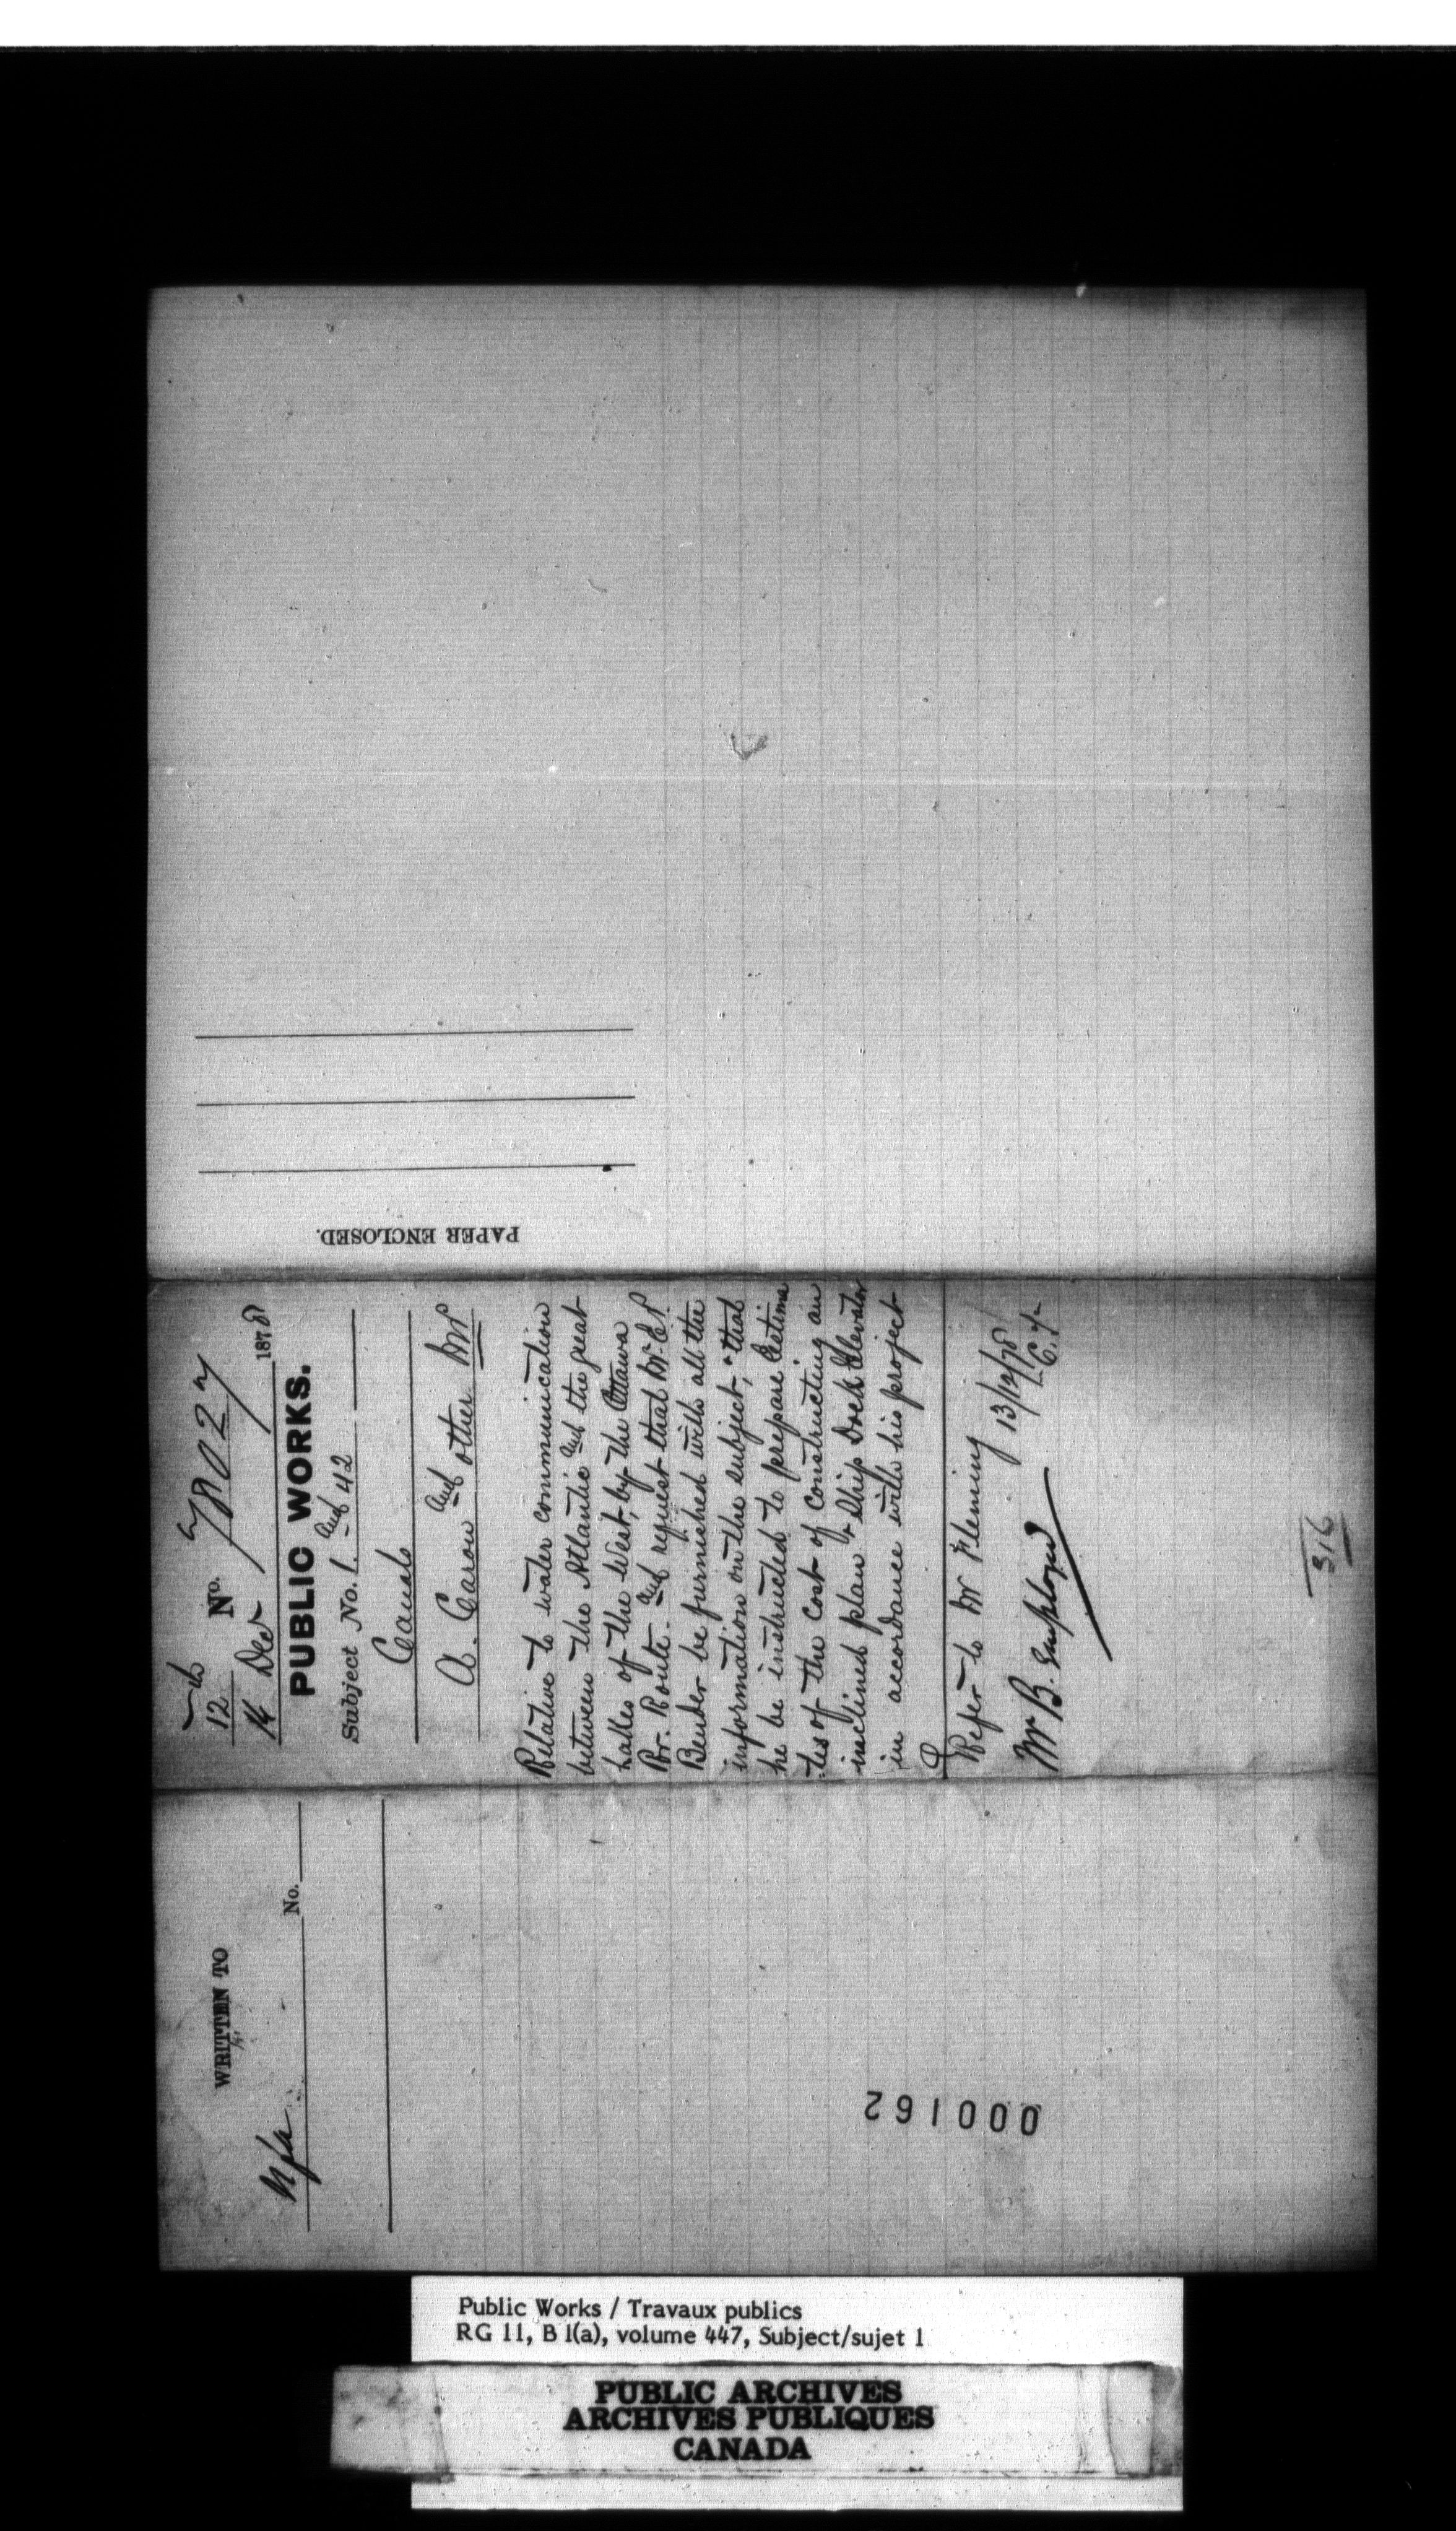 12 No. 78027
14 Decr 1878
PUBLIC WORKS.
Subject No. 1. and 42
Canals
A. Caron and other MP
Relative to water communication
between the Atlantic and the great
Lakes of the West, by the Ottawa
Rr. Route. and request that Mr. E. P.
Bender be furnished with all the
information on the subject, & that
he be instructed to prepare Estima
-tes of the Cost of constructing an
inclined plan & Ship Dock Elevator
in accordance with his project
Refer to Mr Fleming 13/12/78
Mr B.
316
PAPER ENCLOSED.
WRITTEN TO
No.
000162
Public Works / Travaux publics
RG 11, B 1(a), volume 447, Subject/sujet 1
PUBLIC ARCHIVES
ARCHIVES PUBLIQUES
CANADA